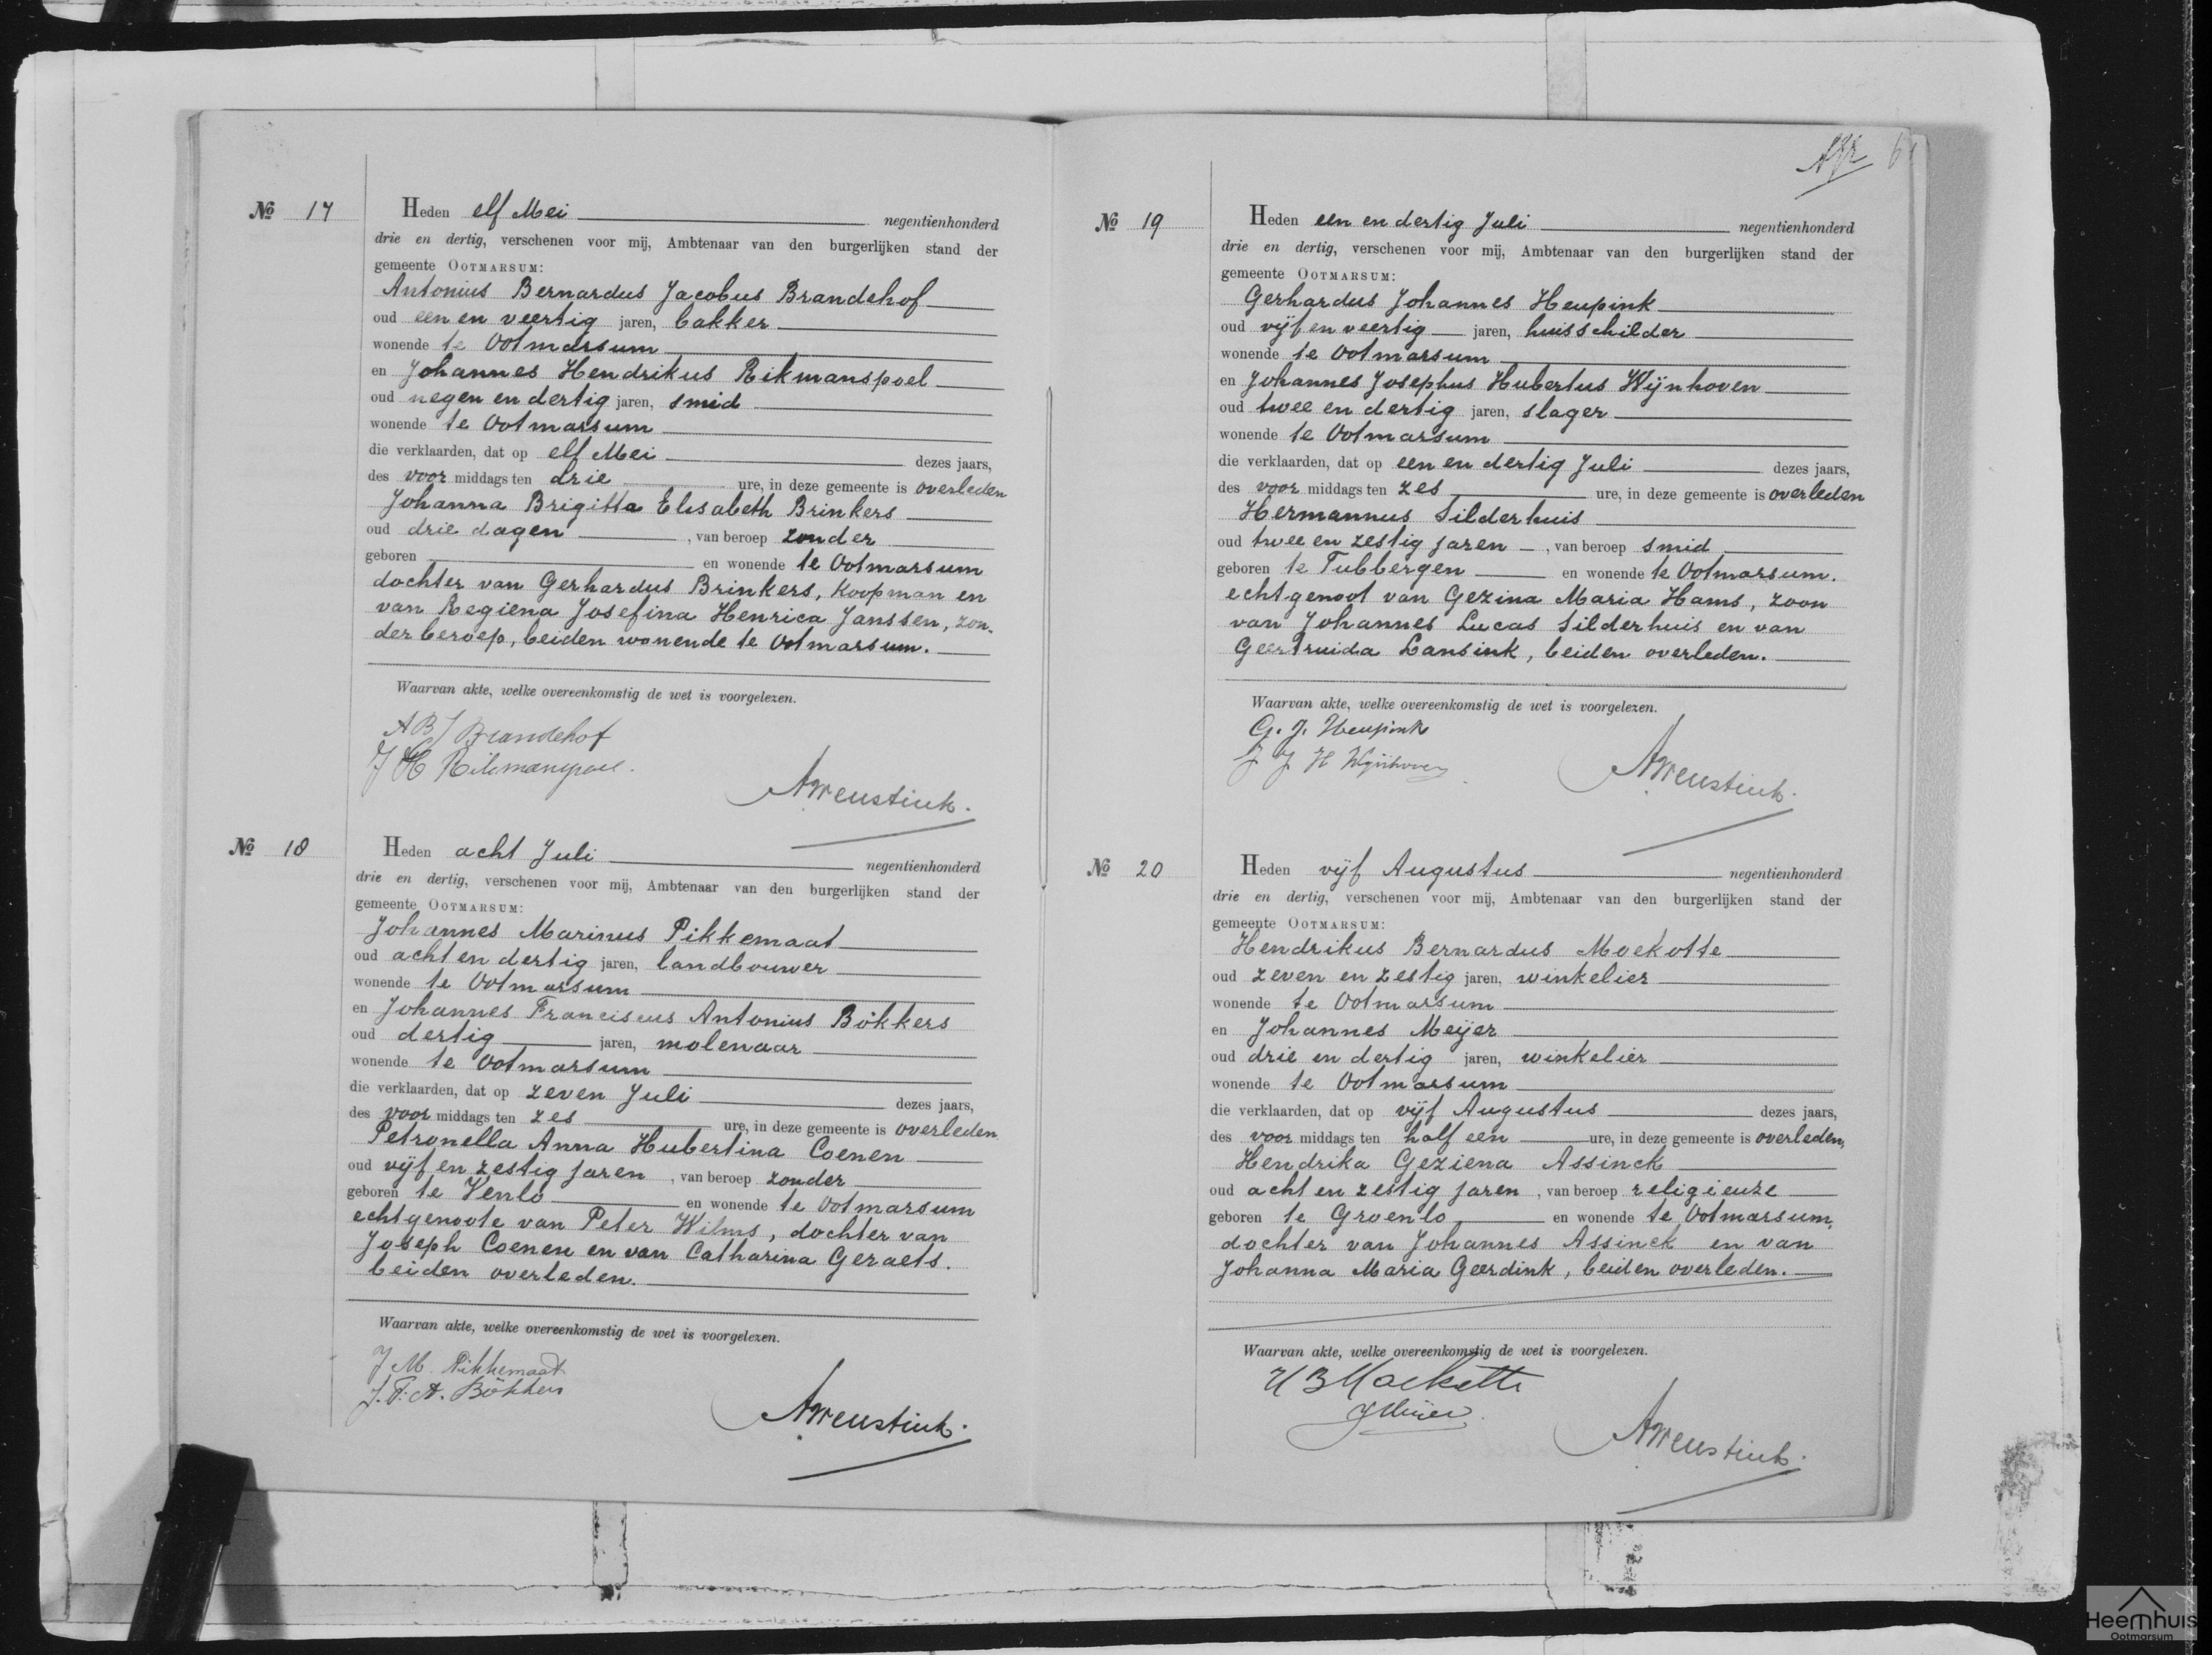 № 17
Heden elf Mei negentienhonderd
drie en dertig, verschenen voor mij, Ambtenaar van den burgerlijken stand der
gemeente OOTMARSUM:
Antonius Bernardus Jacobus Brandehof
oud een en veertig jaren, bakker
wonende te Ootmarsum
en Johannes Hendrikus Rikmanspoel
oud negen en dertig jaren, smid
wonende te Ootmarsum
die verklaarden, dat op elf Mei dezes jaars,
des voor middags ten drie ure, in deze gemeente is overleden
Johanna Brigitta Elisabeth Brinkers
oud drie dagen, van beroep zonder
geboren en wonende te Ootmarsum
dochter van Gerhardus Brinkers, koopman en
van Regiena Josefina Henrica Janssen, zon-
der beroep, beiden wonende te Ootmarsum.
Waarvan akte, welke overeenkomstig de wet is voorgelezen.
A B J Brandehof
J H Rikmanspoel.
№ 18
Heden acht Juli negentienhonderd
drie en dertig, verschenen voor mij, Ambtenaar van den burgerlijken stand der
gemeente OOTMARSUM:
Johannes Marinus Pikkemaat
oud acht en dertig jaren, landbouwer
wonende te Ootmarsum
en Johannes Franciscus Antonius Bökkers
oud dertig jaren, molenaar
wonende te Ootmarsum
die verklaarden, dat op zeven Juli dezes jaars,
des voor middags ten zes ure, in deze gemeente is overleden
Petronella Anna Hubertina Coenen
oud vijf en zestig jaren, van beroep zonder
geboren te Venlo en wonende te Ootmarsum
echtgenoote van Peter Wilms, dochter van
Joseph Coenen en van Catharina Geraets.
beiden overleden.
Waarvan akte, welke overeenkomstig de wet is voorgelezen.
J M. Pikkemaat
J. F. A. Bökkers
№ 19
Heden een en dertig Juli negentienhonderd
drie en dertig, verschenen voor mij, Ambtenaar van den burgerlijken stand der
gemeente OOTMARSUM:
Gerhardus Johannes Heupink
oud vijf en veertig jaren, huisschilder
wonende te Ootmarsum
en Johannes Josephus Hubertus Wijnhoven
oud twee en dertig jaren, slager
wonende te Ootmarsum
die verklaarden, dat op een en dertig Juli dezes jaars,
des voor middags ten zes ure, in deze gemeente is overleden
Hermannus Silderhuis
oud twee en zestig jaren, van beroep smid
geboren te Tubbergen en wonende te Ootmarsum.
echtgenoot van Gezina Maria Hams, zoon
van Johannes Lucas Silderhuis en van
Geertruida Lansink, beiden overleden.
Waarvan akte, welke overeenkomstig de wet is voorgelezen.
G. J. Heupink
J J H Wijnhoven
№ 20
Heden vijf Augustus negentienhonderd
drie en dertig, verschenen voor mij, Ambtenaar van den burgerlijken stand der
gemeente OOTMARSUM:
Hendrikus Bernardus Moekotte
oud zeven en zestig jaren, winkelier
wonende te Ootmarsum
en Johannes Meijer
oud drie en dertig jaren, winkelier
wonende te Ootmarsum
die verklaarden, dat op vijf Augustus dezes jaars,
des voor middags ten half een ure, in deze gemeente is overleden,
Hendrika Geziena Assinck
oud acht en zestig jaren, van beroep religieuze
geboren te Groenlo en wonende te Ootmarsum,
dochter van Johannes Assinck en van
Johanna Maria Geerdink, beiden overleden.
Waarvan akte, welke overeenkomstig de wet is voorgelezen.
H B Moekotte
J Meijer
Heemhuis
Ootmarsum